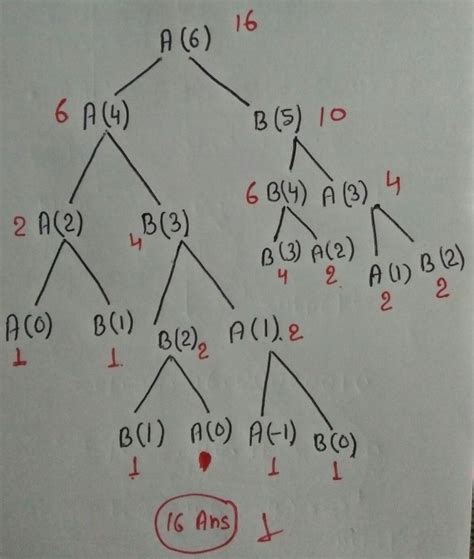 A(6) 16
6 A(4) B(5) 10
6 B(4) A(3) 4
2 A(2) 4 B(3)
B(3) A(2) A(1) B(2)
4 2 2 2
A(0) B(1) B(2) 2 A(1). 2
1 1
B(1) A(0) A(-1) B(0)
1 1 1
16 Ans 1